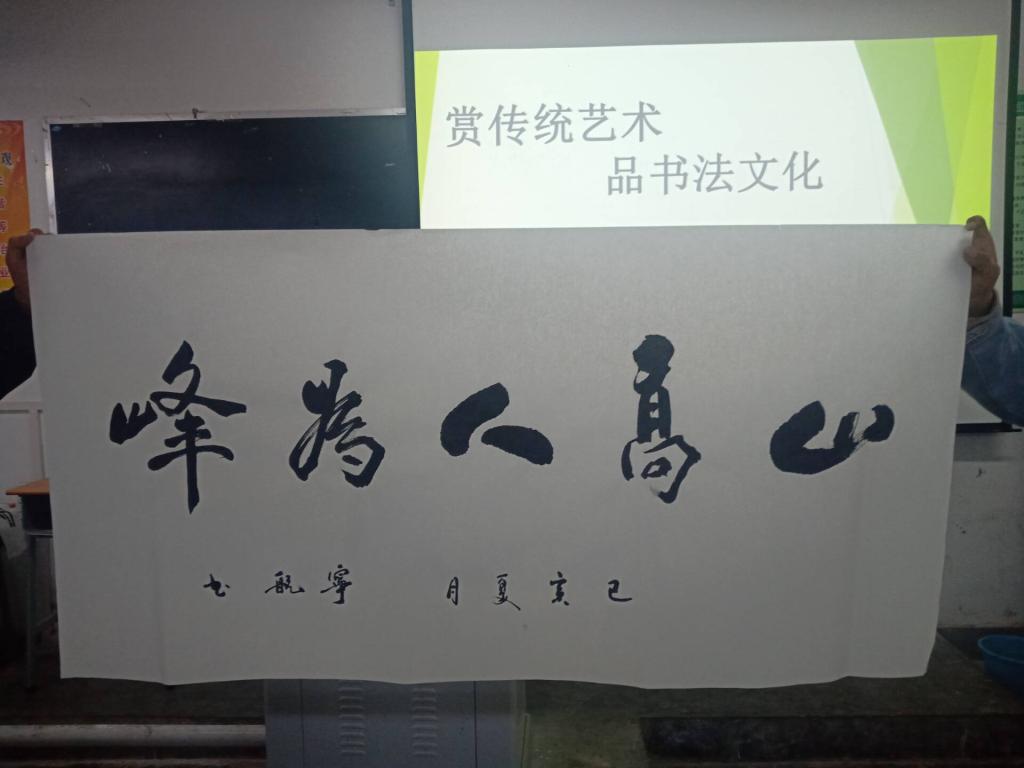 赏传统艺术
品书法文化
山高人为峰
己亥夏月 寧航书